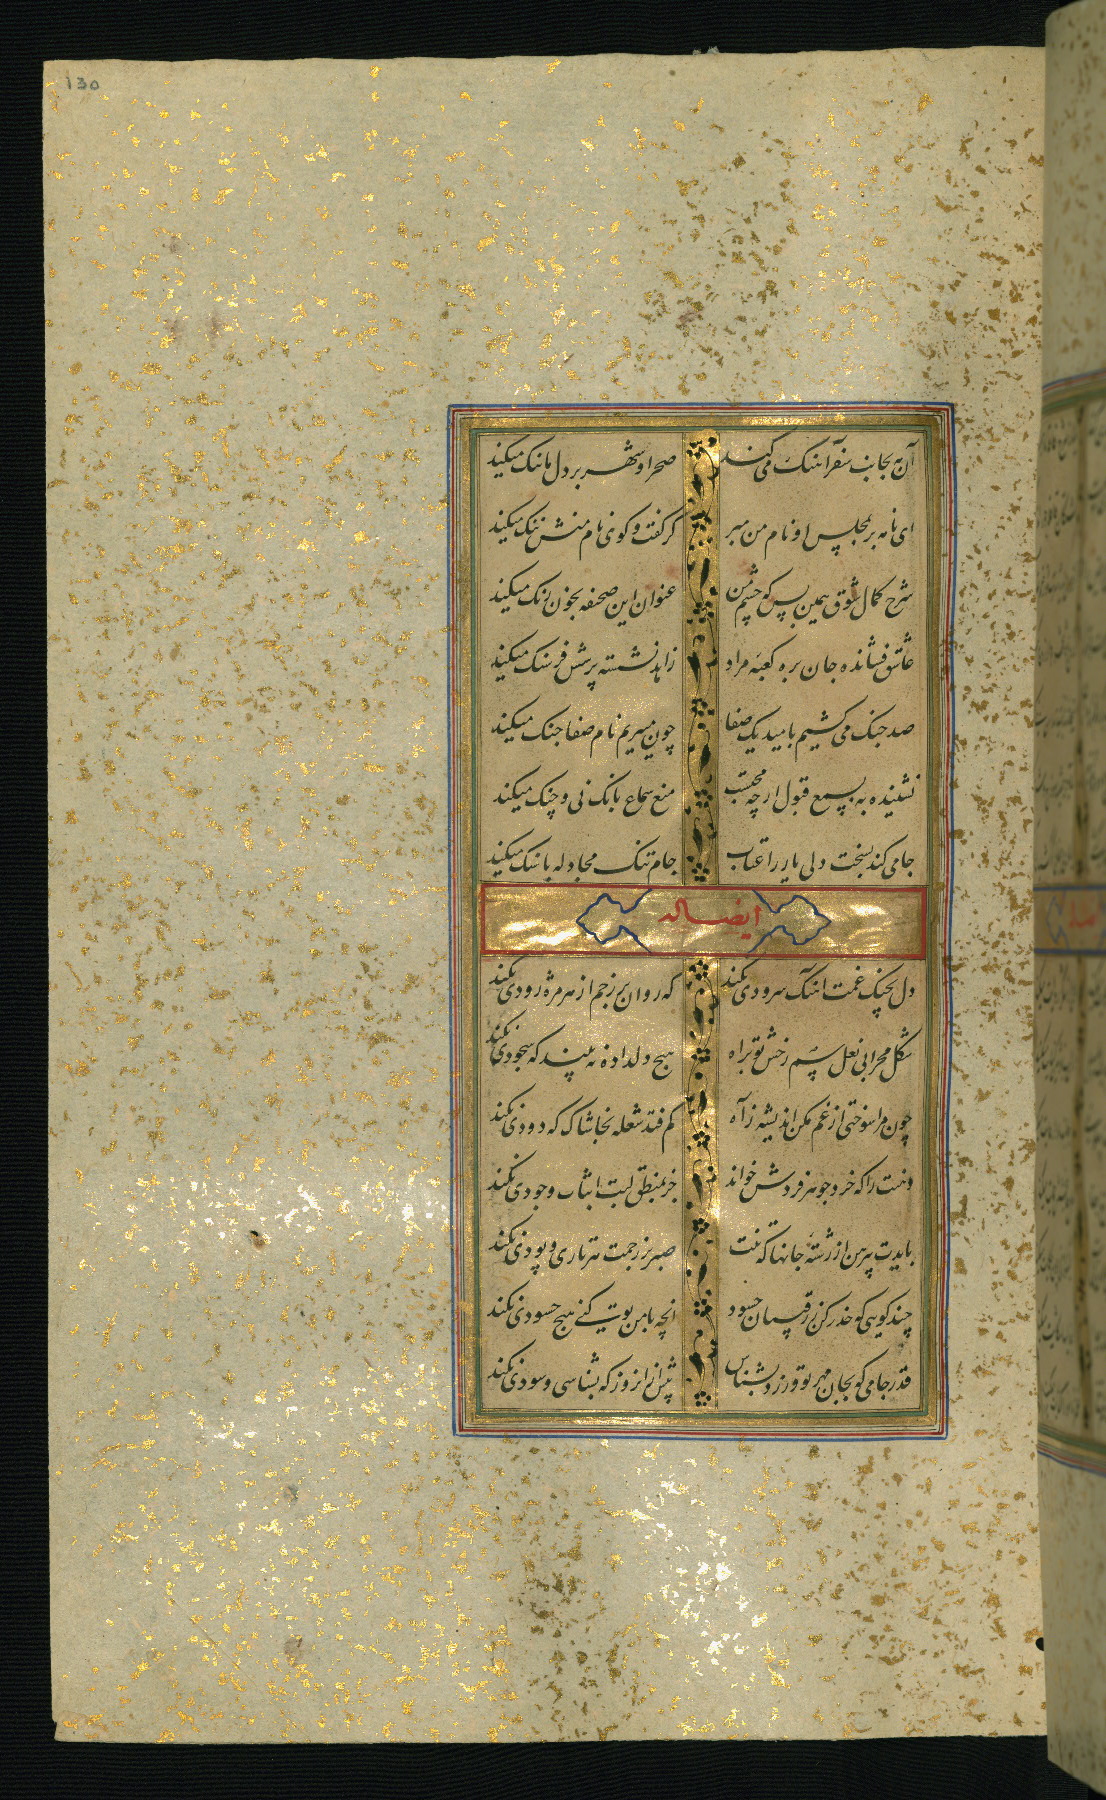 130
آن مه بجانب سفر آهنگ می کند صحرا و شهر بر دل ما تنک میکند
ای نامه بر بمجلس او نام من مبر کر گفت و گوی نام منش ننک میکند
شرح کمال شوق ببین پس که چشم من عنوان این صحیفه بخون رنک میکند
عاشق فشانده جان بره کعبه مراد زاهد نشسته پرسش فرسنک میکند
صد جنک می کشیم بامید یک صفا چون میبریم نام صفا جنک میکند
نشنیده به بسمع قبول ارچه محتسب منع سماع بانک نی و چنک میکند
جامی کند بسخت دلی یار را عتاب جام تنک مجادله با سنک میکند
ایضا له
دل بچنک غمت آهنک سرودی نکند که روان بر رخم از هر مژه رودی نکند
شکل محرابی نعل سم رخش تو براه هیچ دلداده نه بیند که سجودی نکند
چون مرا سوختی از غم مکن اندیشه ز آه کم فتد شعله بخاشاک که دودی نکند
دهنت را که خرد جوهر فردش خواند جز بمنطق لبت اثبات وجودی نکند
بایدت پیرهن از رشته جانها که تنت صبر بر زحمت هر تاری و پودی نکند
چند کویی که حذر کن ز رقیبان حسود آنچه با من تو کنی هیچ حسودی نکند
قدر جامی که بجان مهر تو ورزد بشناس پیش از آن روز که بشناسی و سودی نکند